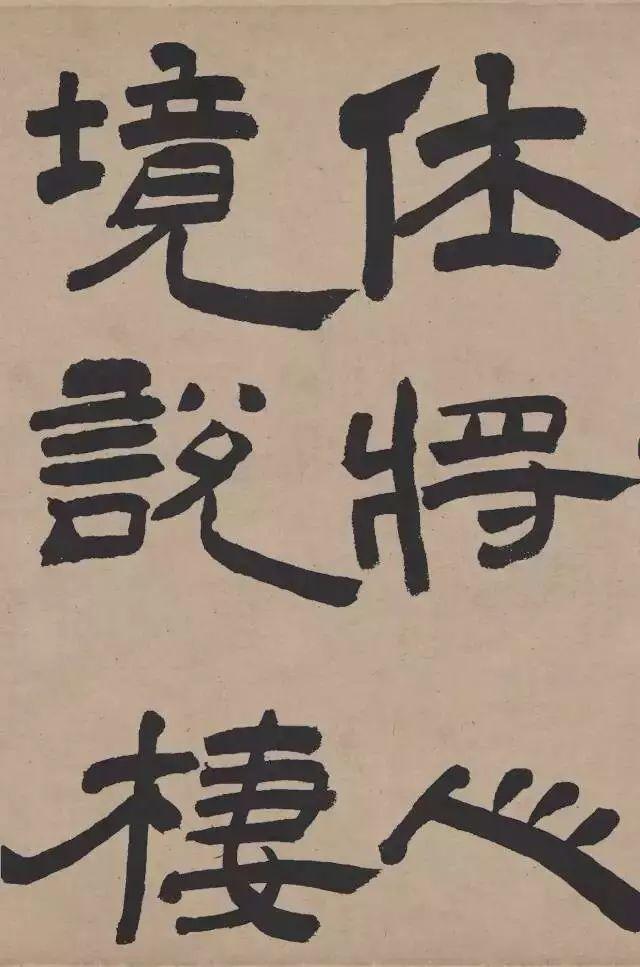 体將心
境說棲